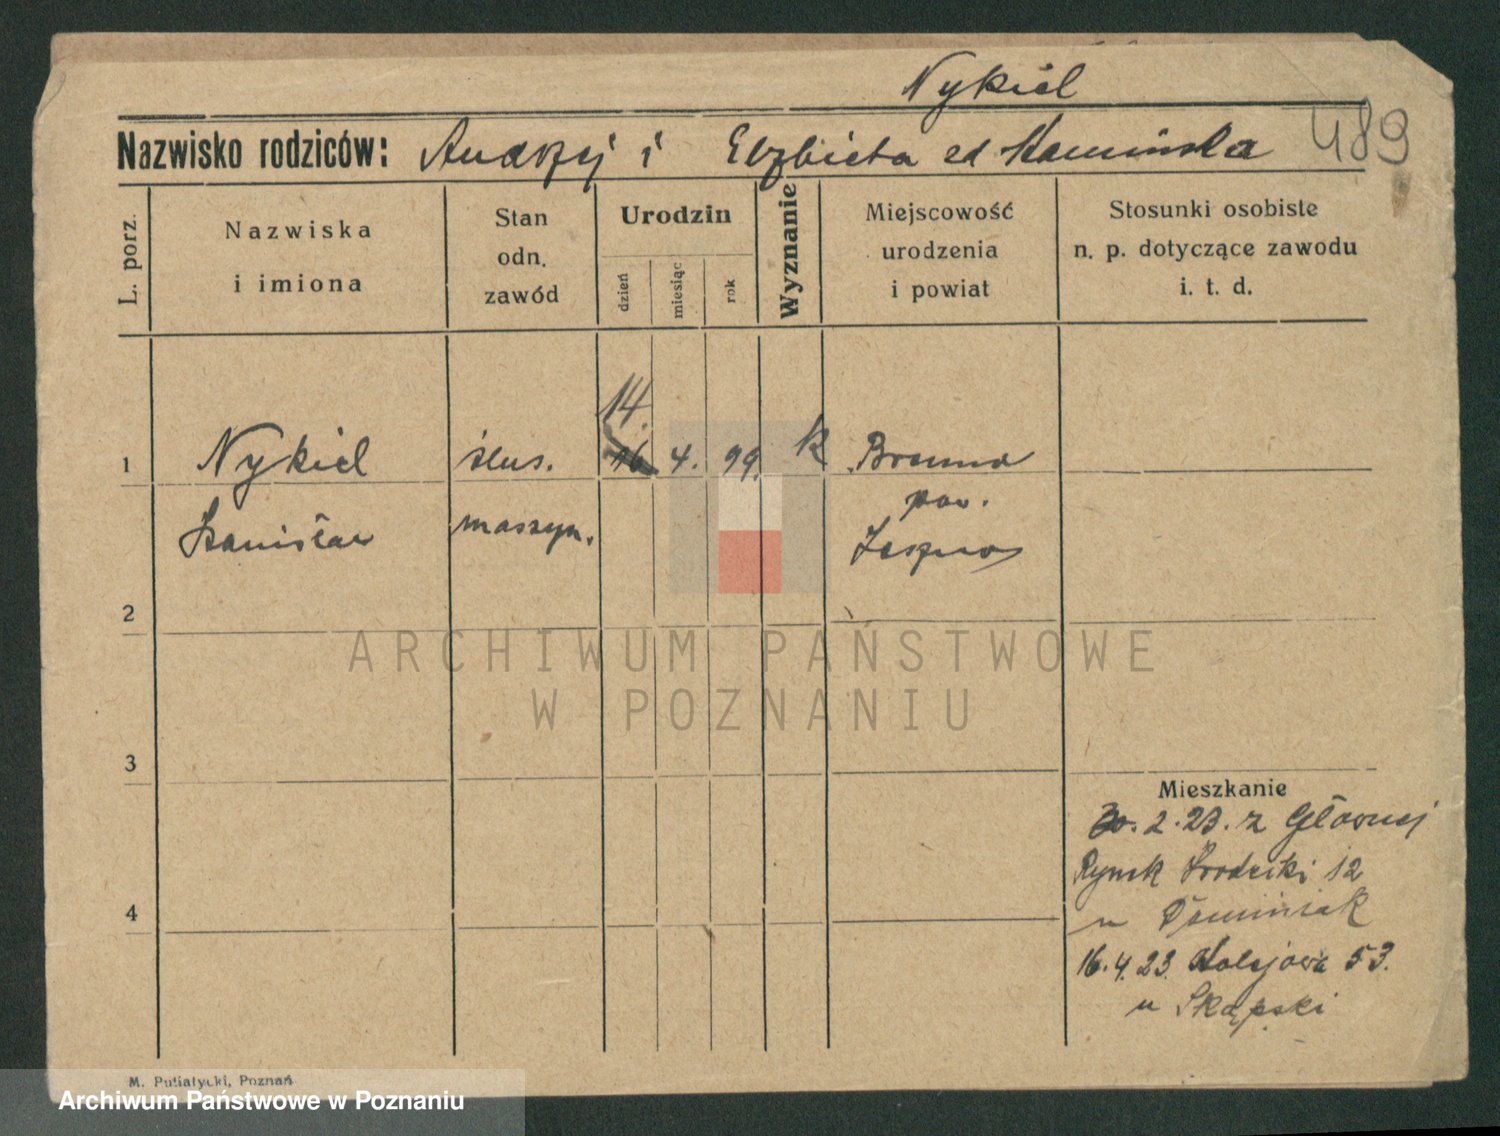 Nykiel
Nazwisko rodziców: Andrzej i Elzbieta ed Kamińska 489
L. porz.
Nazwiska
i imiona
Stan
odn.
zawód
Urodzin
dzień
miesiąc
rok
Wyznanie
Miejscowość
urodzenia
i powiat
Stosunki osobiste
n. p. dotyczące zawodu
i. t. d.
14.
1 Nykiel ślus. 16 4. 99. k
Stanisław maszyn. pow.
2
ARCHIWUM PAŃSTWOWE
W POZNANIU
3
Mieszkanie
2. 23. z Głównej
Rynek Śródecki 12
4
u Dominiak
16. 4. 23. Kolejowa 53.
u Skąpski
M. Putiatycki, Poznań
Archiwum Państwowe w Poznaniu